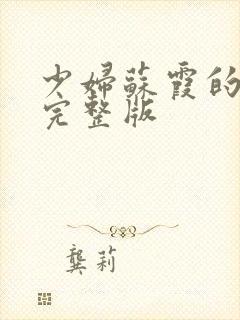 少婦蘇霞的
完整版
龔莉